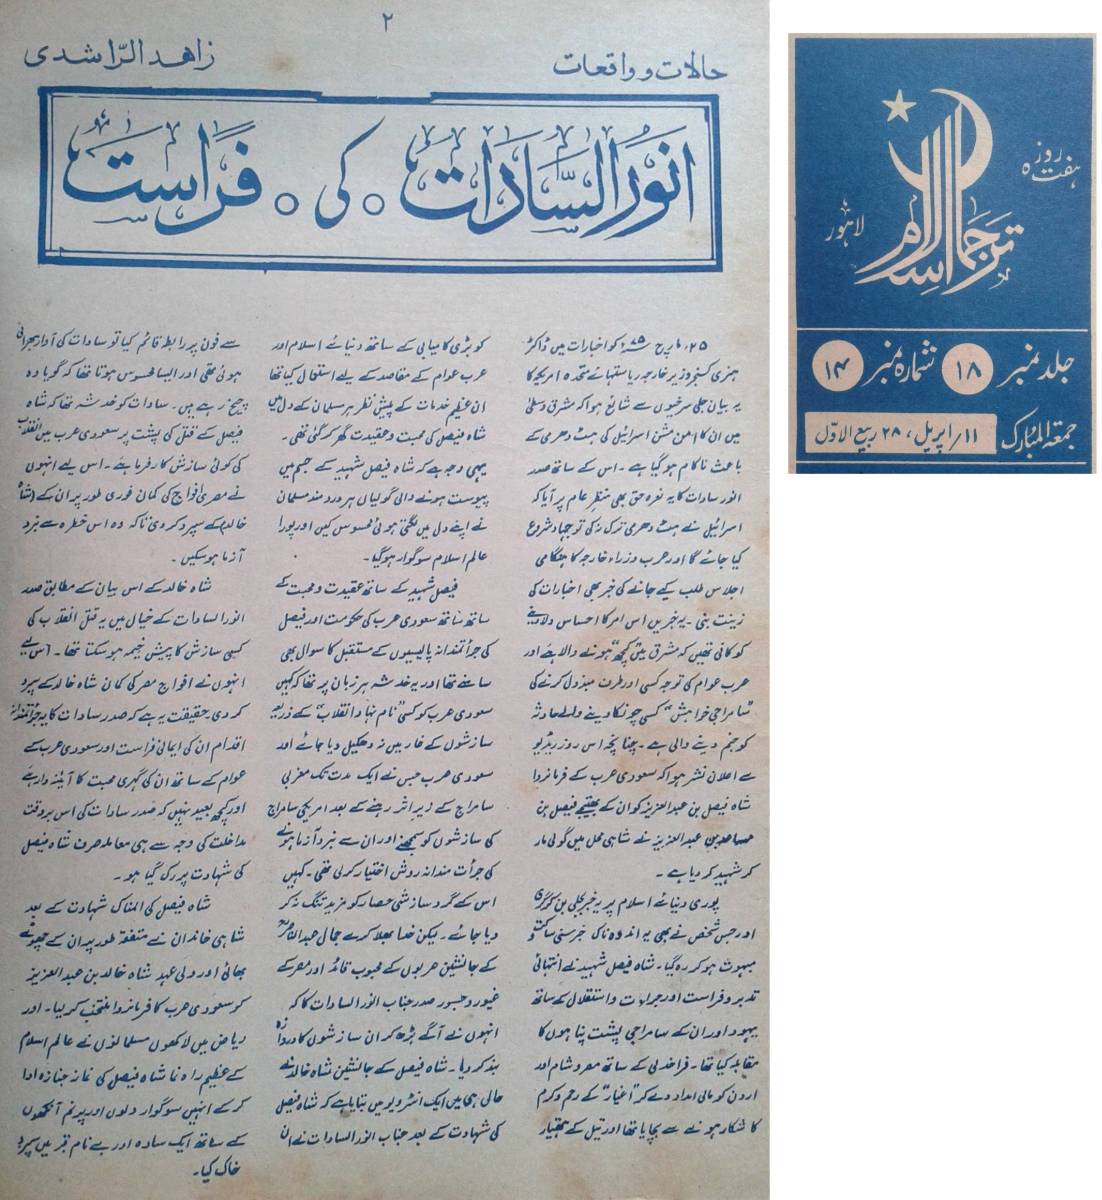 ۲
حالات و واقعات
زاهد الرّاشدی
انور السّادات کی فراست
۲۵، مارچ ۷۵ء کو اخبارات میں ڈاکٹر
ہنری کسنجر وزیر خارجہ ریاستہائے متحدہ امریکہ کا
یہ بیان جلی سرخیوں سے شائع ہوا کہ مشرق وسطیٰ
میں ان کا امن مشن اسرائیل کی ہٹ دھرمی کے
باعث ناکام ہو گیا ہے۔ اس کے ساتھ صدر
انور سادات کا یہ نعرہ حق بھی منظر عام پر آیا کہ
اسرائیل نے ہٹ دھرمی ترک نہ کی تو جہاد شروع
کیا جائے گا اور عرب وزراء خارجہ کا ہنگامی
اجلاس طلب کیے جانے کی خبر بھی اخبارات کی
زینت بنی۔ یہ خبریں اس امر کا احساس دلانے
کو کافی تھیں کہ مشرق میں "کچھ" ہونے والا ہے اور
عرب عوام کی توجہ کسی اور طرف مبذول کرنے کی
"سامراجی خواہش" کسی چونکا دینے والے حادثہ
کو جنم دینے والی ہے۔ چنانچہ اس روز ریڈیو
سے اعلان نشر ہوا کہ سعودی عرب کے فرمانروا
شاہ فیصل بن عبدالعزیز کو ان کے بھتیجے فیصل بن
مساعد بن عبدالعزیز نے شاہی محل میں گولی مار
کر شہید کر دیا ہے۔
پوری دنیائے اسلام پر یہ خبر بجلی بن کر گری
اور جس شخص نے بھی یہ اندوہناک خبر سنی ساکت و
مبہوت ہو کر رہ گیا۔ شاہ فیصل شہید نے انتہائی
تدبر و فراست اور جرأت و استقلال کے ساتھ
یہود اور ان کے سامراجی پشت پناہوں کا
مقابلہ کیا تھا۔ فراخدلی کے ساتھ مصر و شام اور
اردن کو مالی امداد دے کر "اغیار" کے رحم و کرم
کا شکار ہونے سے بچایا تھا اور تیل کے ہتھیار
کو بڑی کامیابی کے ساتھ دنیائے اسلام اور
عرب عوام کے مقاصد کے لیے استعمال کیا تھا
ان عظیم خدمات کے پیش نظر ہر مسلمان کے دل میں
شاہ فیصل کی محبت و عقیدت گھر کر گئی تھی۔
یہی وجہ ہے کہ شاہ فیصل شہید کے جسم میں
پیوست ہونے والی گولیاں ہر درد مند مسلمان
نے اپنے دل میں لگتی ہوئی محسوس کیں اور پورا
عالم اسلام سوگوار ہو گیا۔
فیصل شہید کے ساتھ عقیدت و محبت کے
ساتھ ساتھ سعودی عرب کی حکومت اور فیصل
کی جرأتمندانہ پالیسیوں کے مستقبل کا سوال بھی
سامنے تھا اور یہ خدشہ ہر زبان پر تھا کہ کہیں
سعودی عرب کو کسی "نام نہاد انقلاب" کے ذریعہ
سازشوں کے غار میں نہ دھکیل دیا جائے اور
سعودی عرب جس نے ایک مدت تک مغربی
سامراج کے زیر اثر رہنے کے بعد امریکی سامراج
کی سازشوں کو سمجھنے اور ان سے نبرد آزما ہونے
کی جرأت مندانہ روش اختیار کر لی تھی۔ کہیں
اس کے گرد سازشی حصار کو مزید تنگ نہ کر
دیا جائے۔ لیکن خدا بھلا کرے جمال عبدالناصر
کے جانشین عربوں کے محبوب قائد اور مصر کے
غیور و جسور صدر جناب انور السادات کا کہ
انہوں نے آگے بڑھ کر ان سازشوں کا دروازہ
بند کر دیا۔ شاہ فیصل کے جانشین شاہ خالد نے
حال ہی میں ایک انٹرویو میں بتایا ہے کہ شاہ فیصل
کی شہادت کے بعد جناب انور السادات نے ان
سے فون پر رابطہ قائم کیا تو سادات کی آواز بھرائی
ہوئی تھی اور ایسا محسوس ہوتا تھا کہ گویا وہ
چیخ رہے ہیں۔ سادات کو خدشہ تھا کہ شاہ
فیصل کے قتل کی پشت پر سعودی عرب میں انقلاب
کی کوئی سازش کارفرما ہے۔ اس لیے انہوں
نے مصری افواج کی کمان فوری طور پر ان کے (شاہ
خالد) کے سپرد کر دی تاکہ وہ اس خطرہ سے نبرد
آزما ہو سکیں۔
شاہ خالد کے اس بیان کے مطابق صدر
انور السادات کے خیال میں یہ قتل انقلاب کی
کسی سازش کا پیش خیمہ ہو سکتا تھا۔ اس لیے
انہوں نے افواج مصر کی کمان شاہ خالد کے سپرد
کر دی حقیقت یہ ہے کہ صدر سادات کا یہ جرأتمندانہ
اقدام ان کی ایمانی فراست اور سعودی عرب کے
عوام کے ساتھ ان کی گہری محبت کا آئینہ دار ہے
اور کچھ بعید نہیں کہ صدر سادات کی اس بروقت
مداخلت کی وجہ سے ہی معاملہ صرف شاہ فیصل
کی شہادت پر رک گیا ہو۔
شاہ فیصل کی المناک شہادت کے بعد
شاہی خاندان نے متفقہ طور پر ان کے چھوٹے
بھائی اور ولی عہد شاہ خالد بن عبدالعزیز
کو سعودی عرب کا فرمانروا منتخب کر لیا۔ اور
ریاض میں لاکھوں مسلمانوں نے عالم اسلام
کے عظیم راہ نما شاہ فیصل کی نماز جنازہ ادا
کر کے انہیں سوگوار دلوں اور پرنم آنکھوں
کے ساتھ ایک سادہ اور بے نام قبر میں سپرد
خاک کیا۔
ہفت روزہ
ترجمان اسلام
لاہور
جلد نمبر ۱۸ شمارہ نمبر ۱۴
جمعۃ المبارک ۱۱/اپریل، ۲۸ ربیع الاوّل